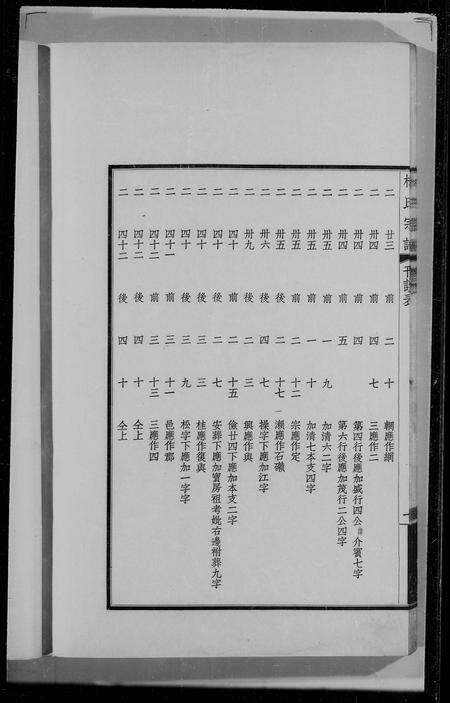 氏宗譜 刊誤表
二 廿三 前 二 十 輞應作網
二 卅四 前 四 七 三應作二
二 卅四 前 四 第四行後應加盛行四公諱介賓七字
二 卅四 前 五 第六行後應加茂行二公四字
二 卅五 前 一 九 加清六二字
二 卅五 前 一 十 加清七本支四字
二 卅五 前 二 十二 宗應作定
二 卅五 後 二 十七 應作石
二 卅六 後 四 七 操字下應加江字
二 卅九 後 二 三 興應作與
二 四十 前 二 十五 儉廿四下應加本支二字
二 四十 後 二 七 安葬下應加寶房祖考妣右邊附葬九字
二 四十 後 三 三 桂應作復與
二 四十 後 三 九 松字下應加一字字
二 四十一 前 三 十一 邑應作
二 四十二 前 三 十三 三應作四
二 四十二 後 四 十 仝上
二 四十二 後 四 十 仝上